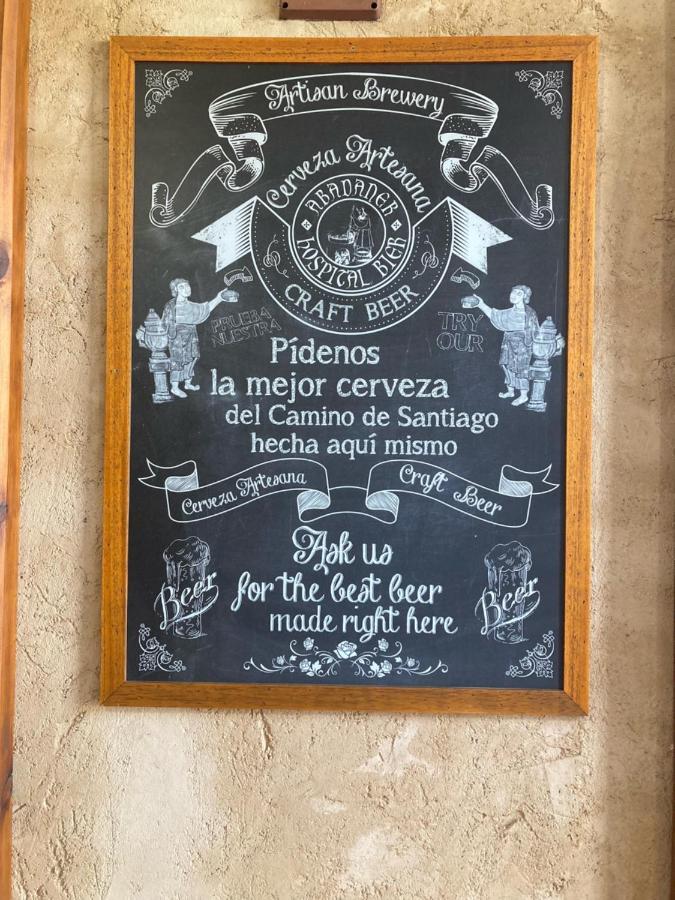 Artisan Brewery
Cerveza Artesana
ABADANER
HOSPITAL BIER
CRAFT BEER
PRUEBA
NUESTRA
TRY
OUR
Pídenos
la mejor cerveza
del Camino de Santiago
hecha aquí mismo
Cerveza Artesana
Craft Beer
Ask us
for the best beer
made right here
Beer
Beer